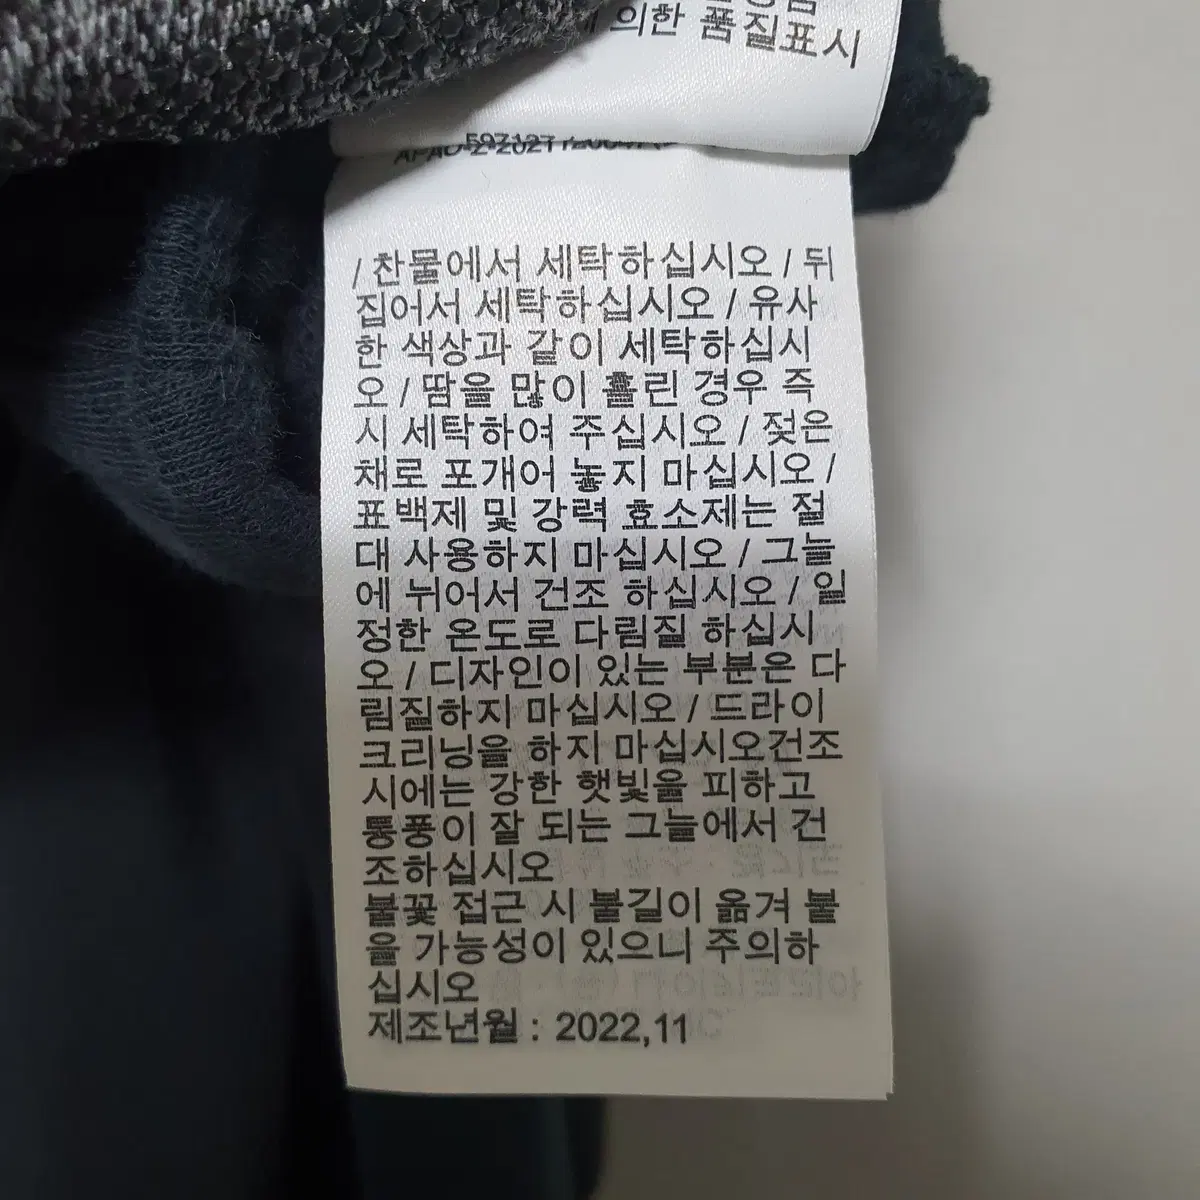 의한 품질표시
/ 찬물에서 세탁하십시오 / 뒤
집어서 세탁하십시오 / 유사
한 색상과 같이 세탁하십시
오 / 땀을 많이 흘린 경우 즉
시 세탁하여 주십시오 / 젖은
채로 포개어 놓지 마십시오 /
표백제 및 강력 효소제는 절
대 사용하지 마십시오 / 그늘
에 뉘어서 건조 하십시오 / 일
정한 온도로 다림질 하십시
오 / 디자인이 있는 부분은 다
림질하지 마십시오 / 드라이
크리닝을 하지 마십시오건조
시에는 강한 햇빛을 피하고
통풍이 잘 되는 그늘에서 건
조하십시오
불꽃 접근 시 불길이 옮겨 붙
을 가능성이 있으니 주의하
십시오
제조년월 : 2022,11